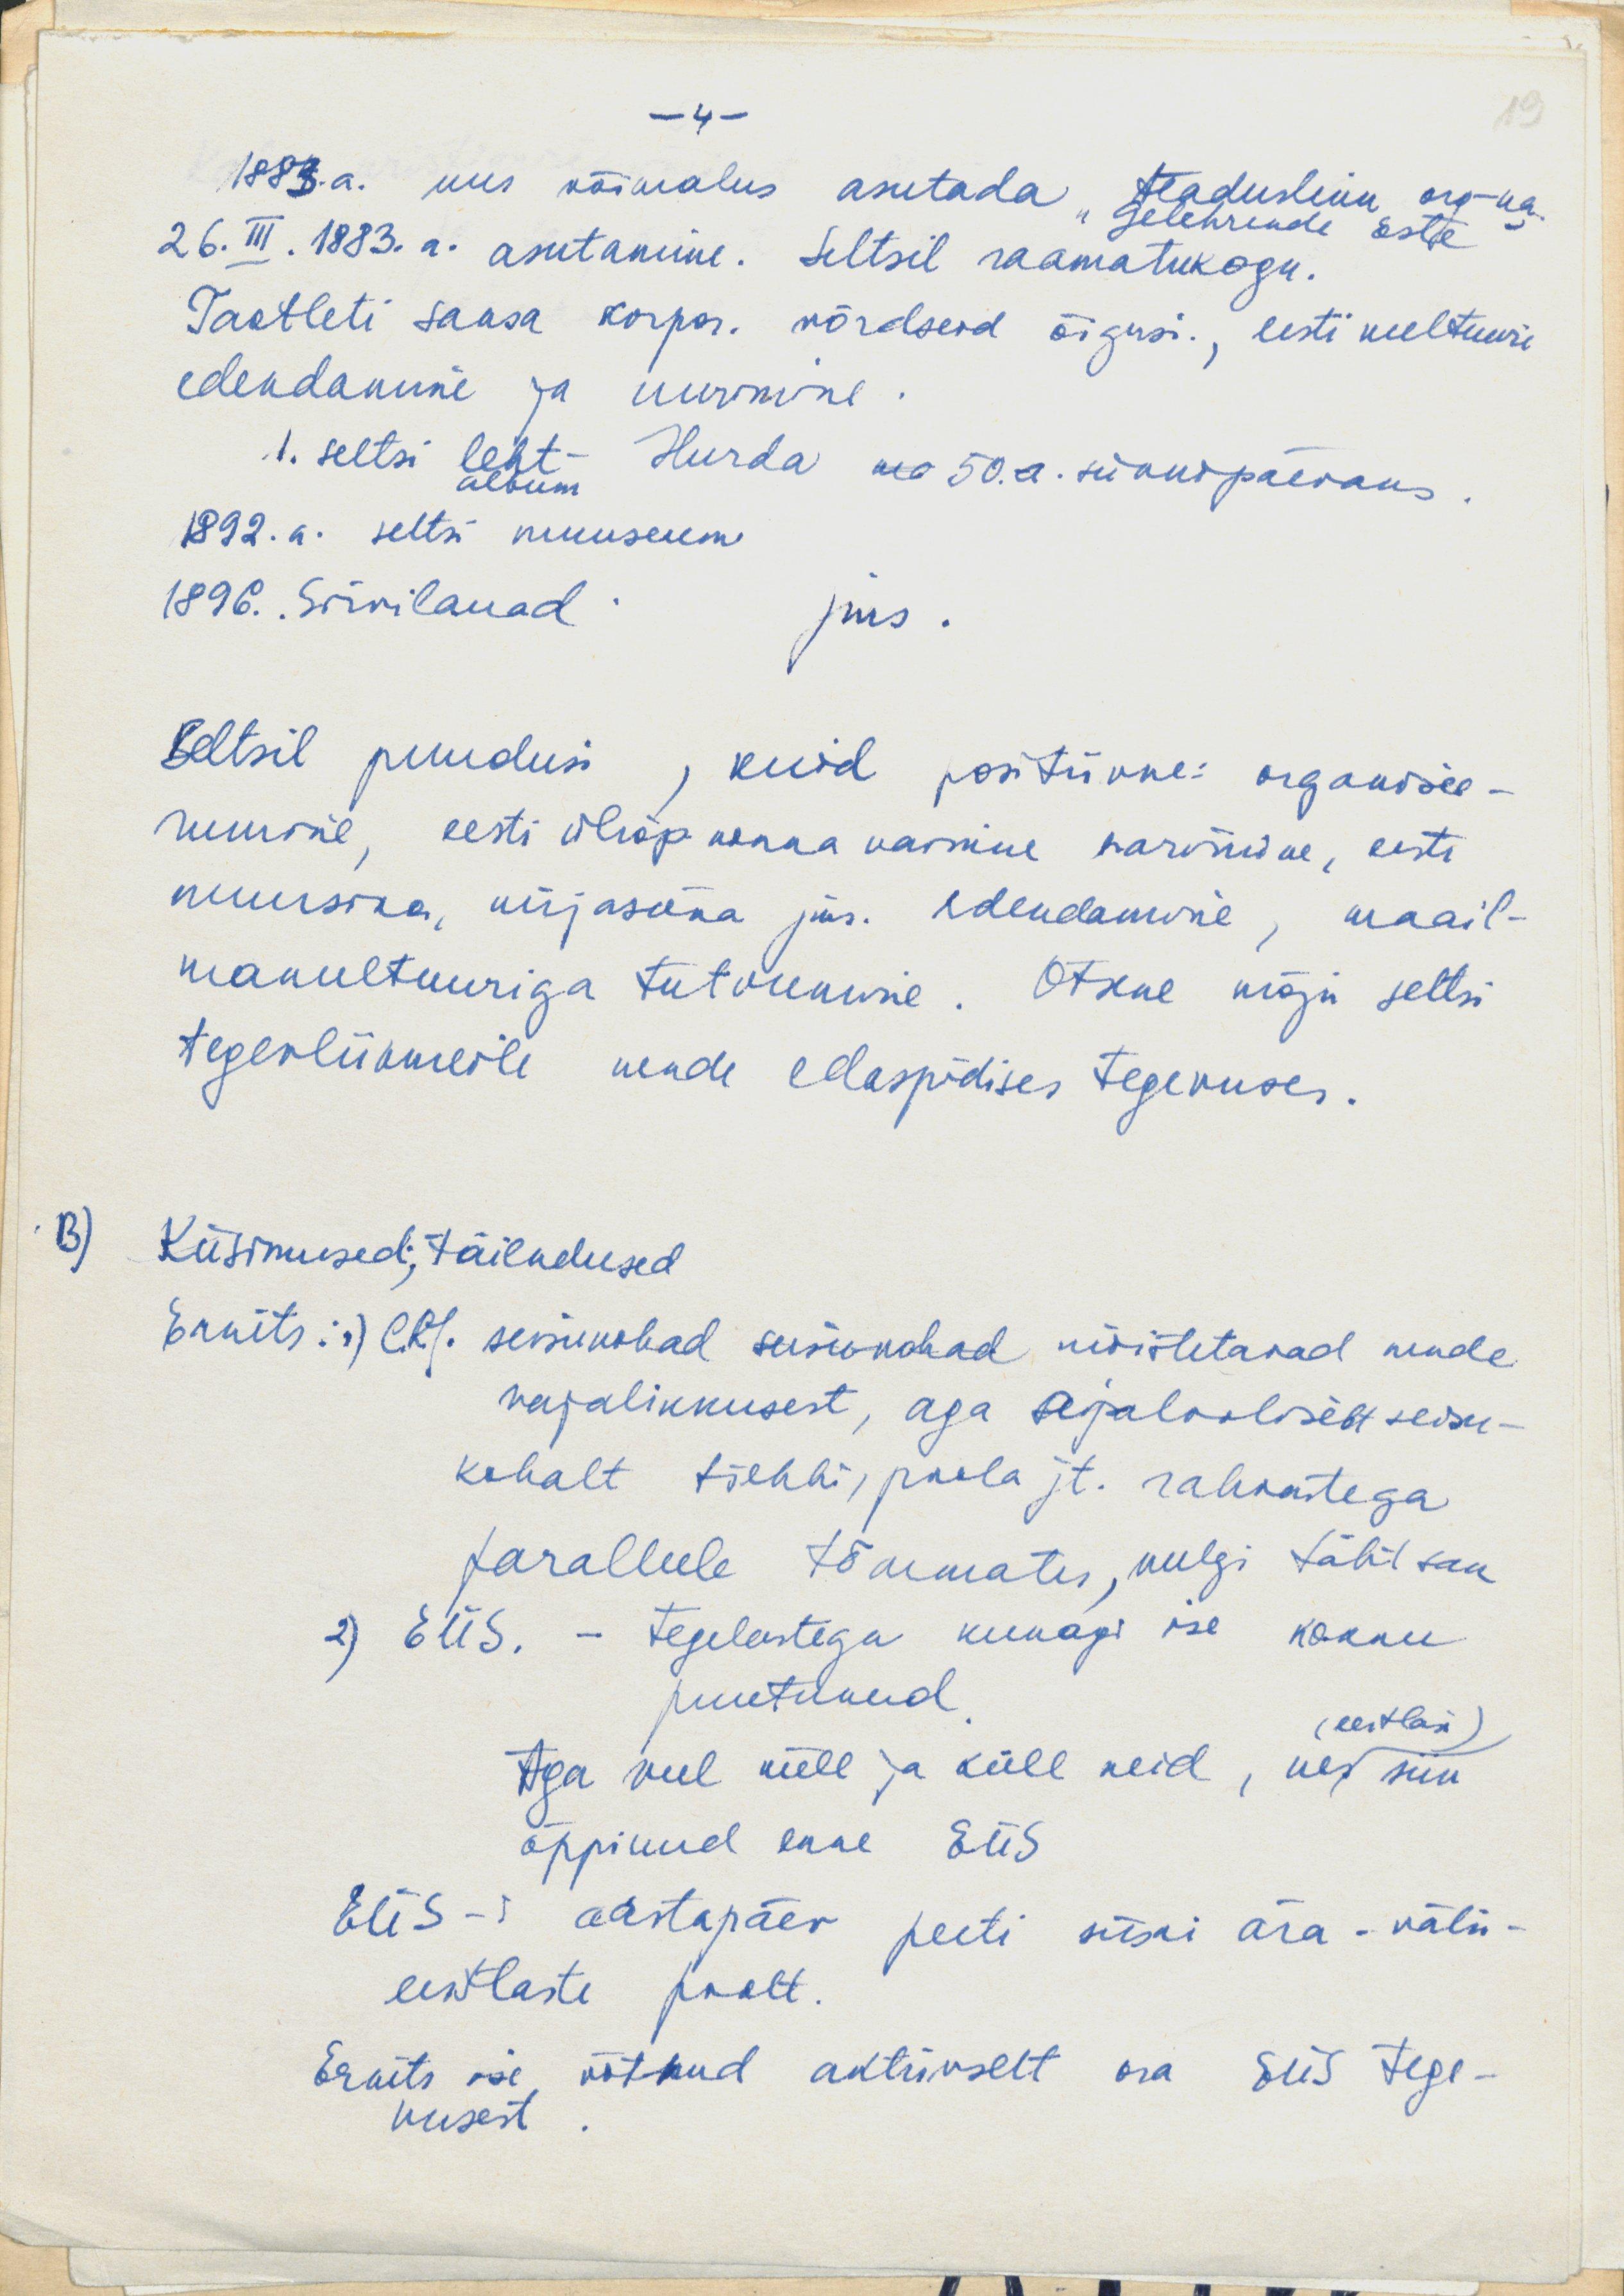 19
-4-
1883.a. uus võimalus asutada teaduslikku org-na.
"Gelehrende Este"
26. III. 1883. a. asutamine. Seltsil raamatukogu.
Taotleti saksa korpor. võrdseid õigusi., eesti kultuuri
edendamine ja uurimine.
1. seltsi leht - Hurda 50.a. sünnipäevaks.
album
1892. a. seltsi muuseum
1896. Sirvilauad. jms.
Seltsil puudusi, kuid positiivne: organisee-
rumine, eesti üliõpkonna vaimine harimine, eesti
muusika, kirjasõna jms. edendamine, maail-
makultuuriga tutvumine. Otsene mõju seltsi
tegevliikmeile nende edaspidises tegevuses.
B) Küsimused; täiendused
Ernits: 1) C.R.J. seisukohad seisukohad mõistetavad nende
vajalikkusest, aga ajaloolisett seisu-
kohalt tšehhi, poola jt. rahvastega
paralleele tõmmates, kulgi tähtsam
2) EÜS. - tegelastega kunagi ise kokku
puutunud.
(eestlasi)
Aga veel küll ja küll neid, kes siin
õppinud enne EÜS
EÜS-i aastapäev peeti siiski ära - välis-
eestlaste poolt.
Ernits ise võtnud aktiivselt osa EÜS tege-
vusest.